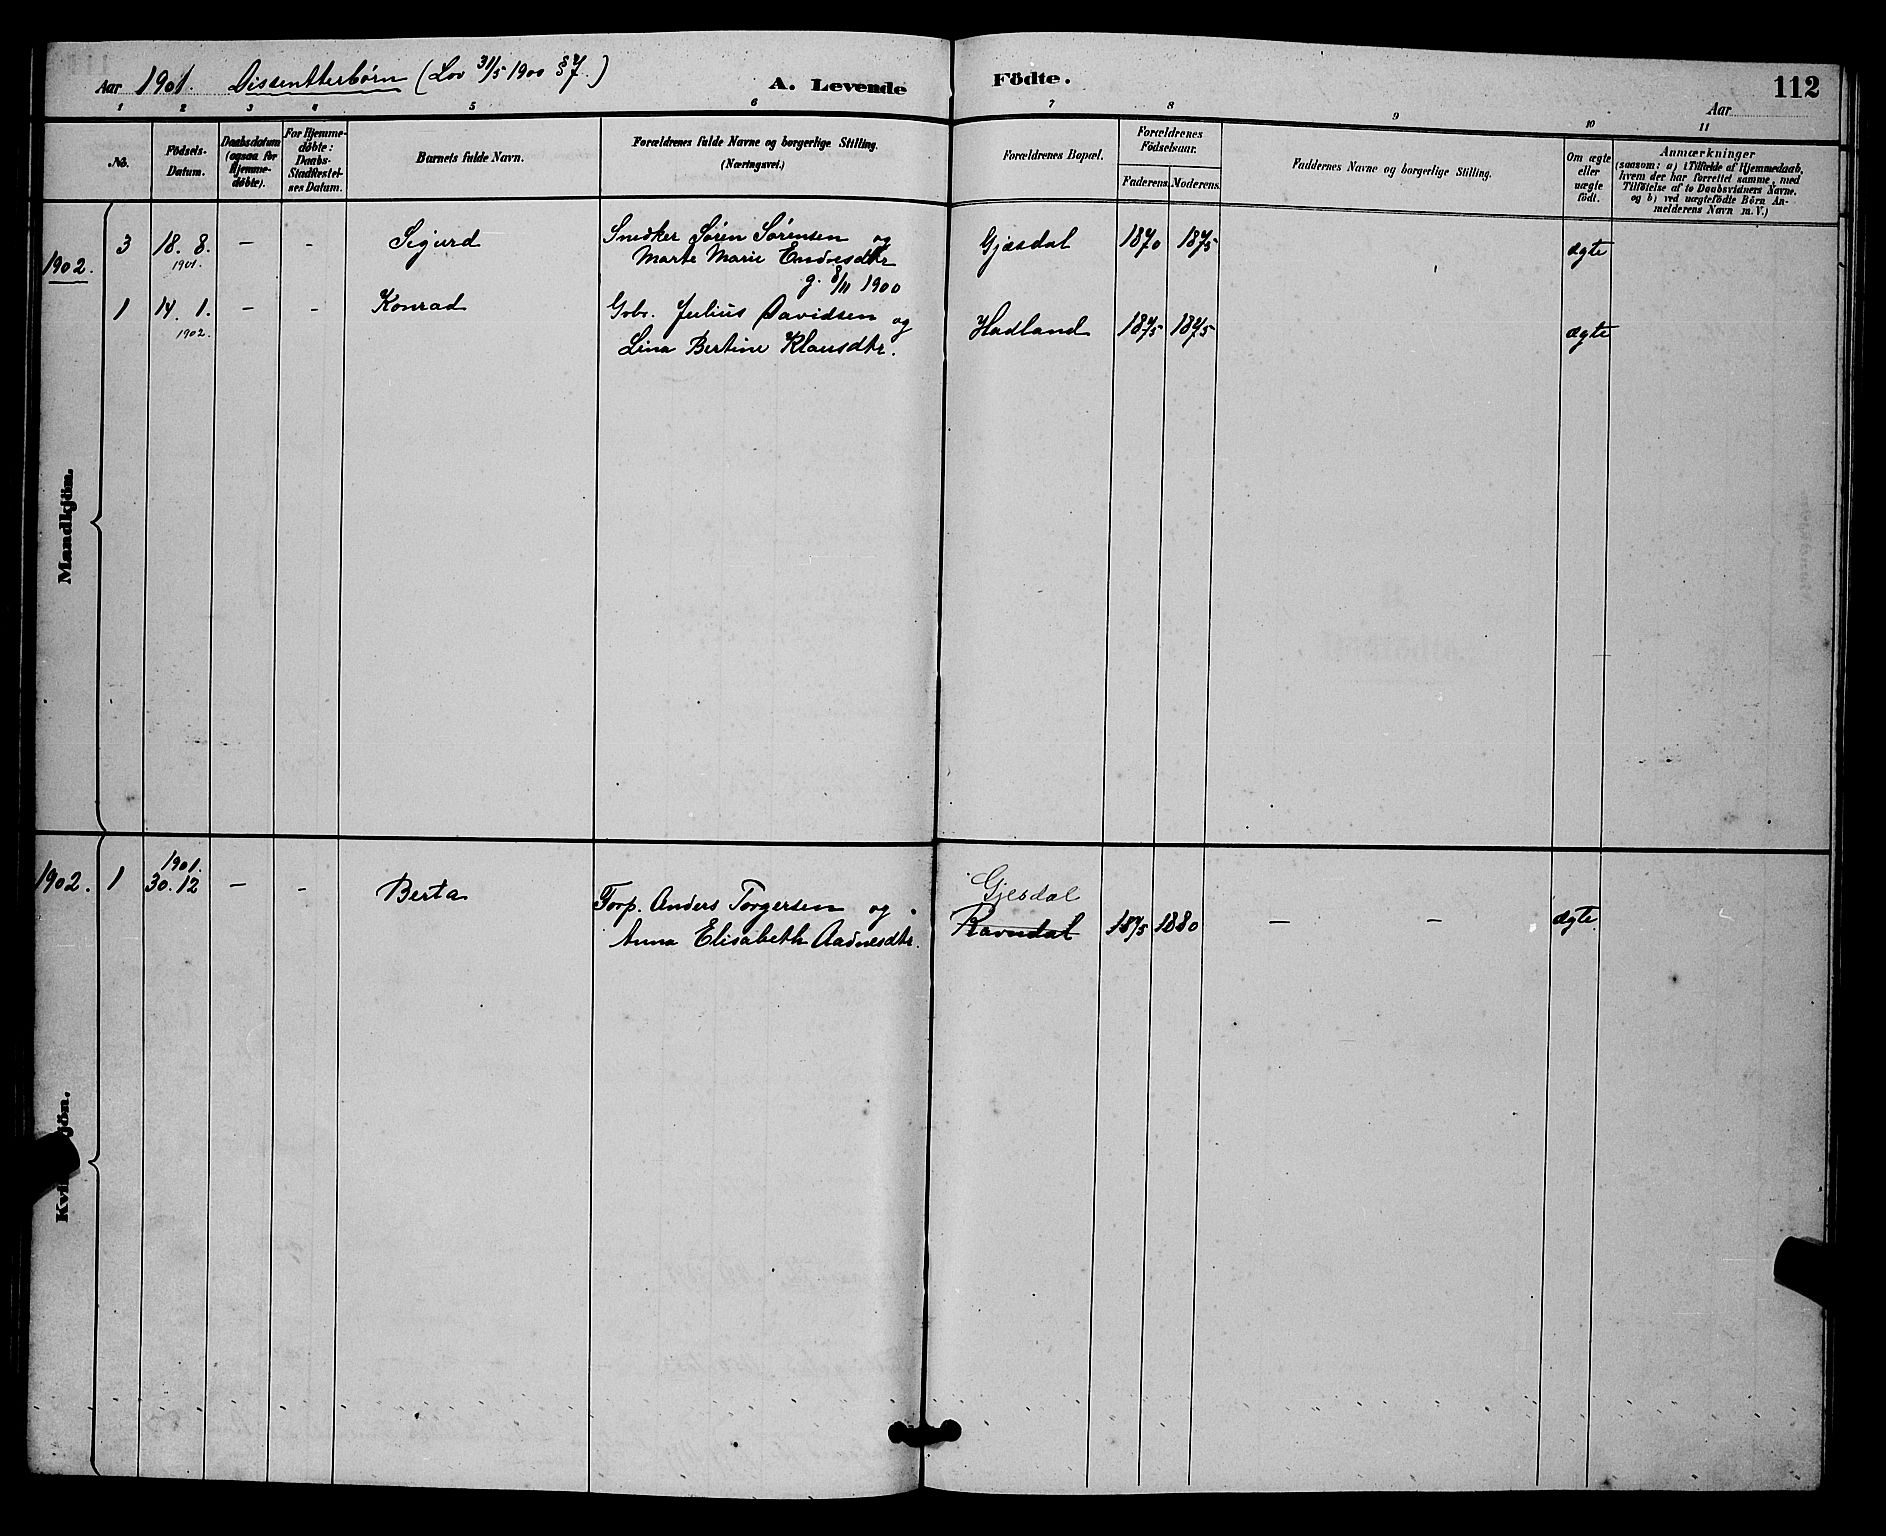 Aar 1901. Dissentterbørn (Lov 31/5 1900 § 7.) A. Levende Födte. 112
Aar
1 2 3 4 5 6 7 8 9 10 11
No.
Födsels-
Datum.
Daabsdatum
(ogsaa for
Hjemme-
döbte).
For Hjemme-
döbte:
Daabs-
Stadfæstel-
ses Datum.
Barnets fulde Navn.
Forældrenes fulde Navne og borgerlige Stilling.
(Næringsvei.)
Forældrenes Bopæl.
Forældrenes
Födselsaar.
Faderens. Moderens.
Faddernes Navne og borgerlige Stilling.
Om ægte
eller
uægte
födt.
Anmærkninger
(saasom: a) i Tilfælde af Hjemmedaab,
hvem der har forrettet samme, med
Tilföielse af to Daabsvidners Navne.
og b) ved uægtefödte Börn An-
melderens Navn m. V.)
Mandkjön.
3 18. 8. — - Sigurd Snedker Søren Sørensen og Gjæsdal 1870 1875 ægte
1902. 1901. Marte Marie Endresdtr
g. 8/11 1900
1 14. 1. — - Konrad Gbr. Julius Davidsen og Hadland 1875 1875 ægte
1902. Lina Bertine Klausdtr.
Kvi jön.
1902. 1 1901. 30. 12 — - Berta Forp. Anders Torgersen og Gjesdal
Anna Elisabeth Aadnesdtr. Ravndal 1875 1880 — — ægte.